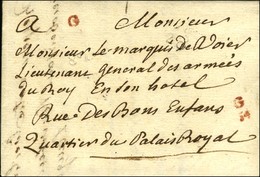 A Monsieur
Monsieur le marquis de Voier
Lieutenant general des armées
du Roy En son hotel
Rue Des Bons Enfans
Quartier du Palais Royal
G
G